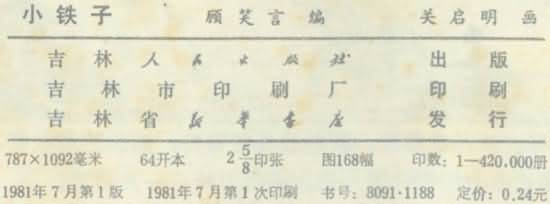 小铁子 顾笑言编 关启明画
吉林人民出版社 出版
吉林市印刷厂 印刷
吉林省新华书店 发行
787×1092毫米 64开本 2 5/8印张 图168幅 印数：1—420.000册
1981年7月第1版 1981年7月第1次印刷 书号：8091·1188 定价：0.24元